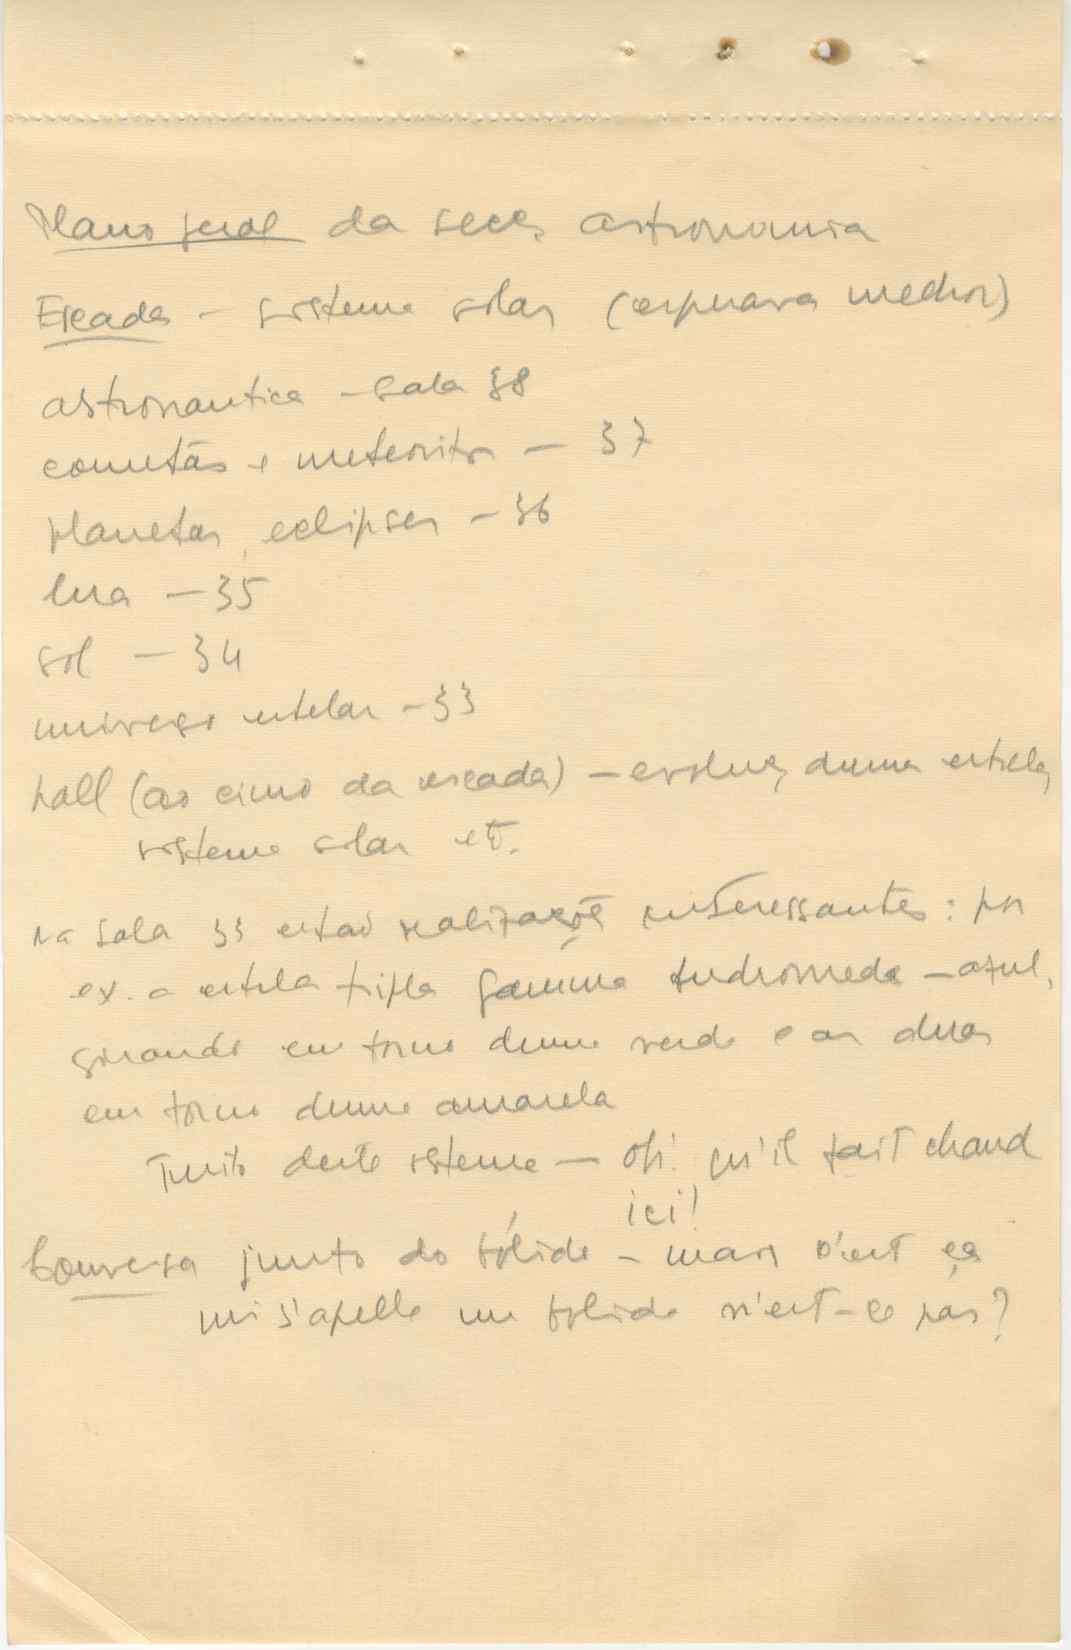 Plano geral da secç. astronomia
Escada - sistema solar (esperava melhor)
astronautica - sala 38
cometas e meteoritos - 37
planetas, eclipses - 36
lua - 35
sol - 34
universo estelar - 33
hall (ao cimo da escada) - evoluç. duma estrela,
sistema solar etc.
na sala 33 estão realizações interessantes: por
ex. a estrela tripla gamma Andromeda - azul,
girando em torno duma verde e as duas
em torno duma amarela
Junto deste sistema - oh! qu'il fait chaud
ici!
Conversa junto do bólide - mais c'est ça
qui s'apelle un bolide n'est-ce pas?